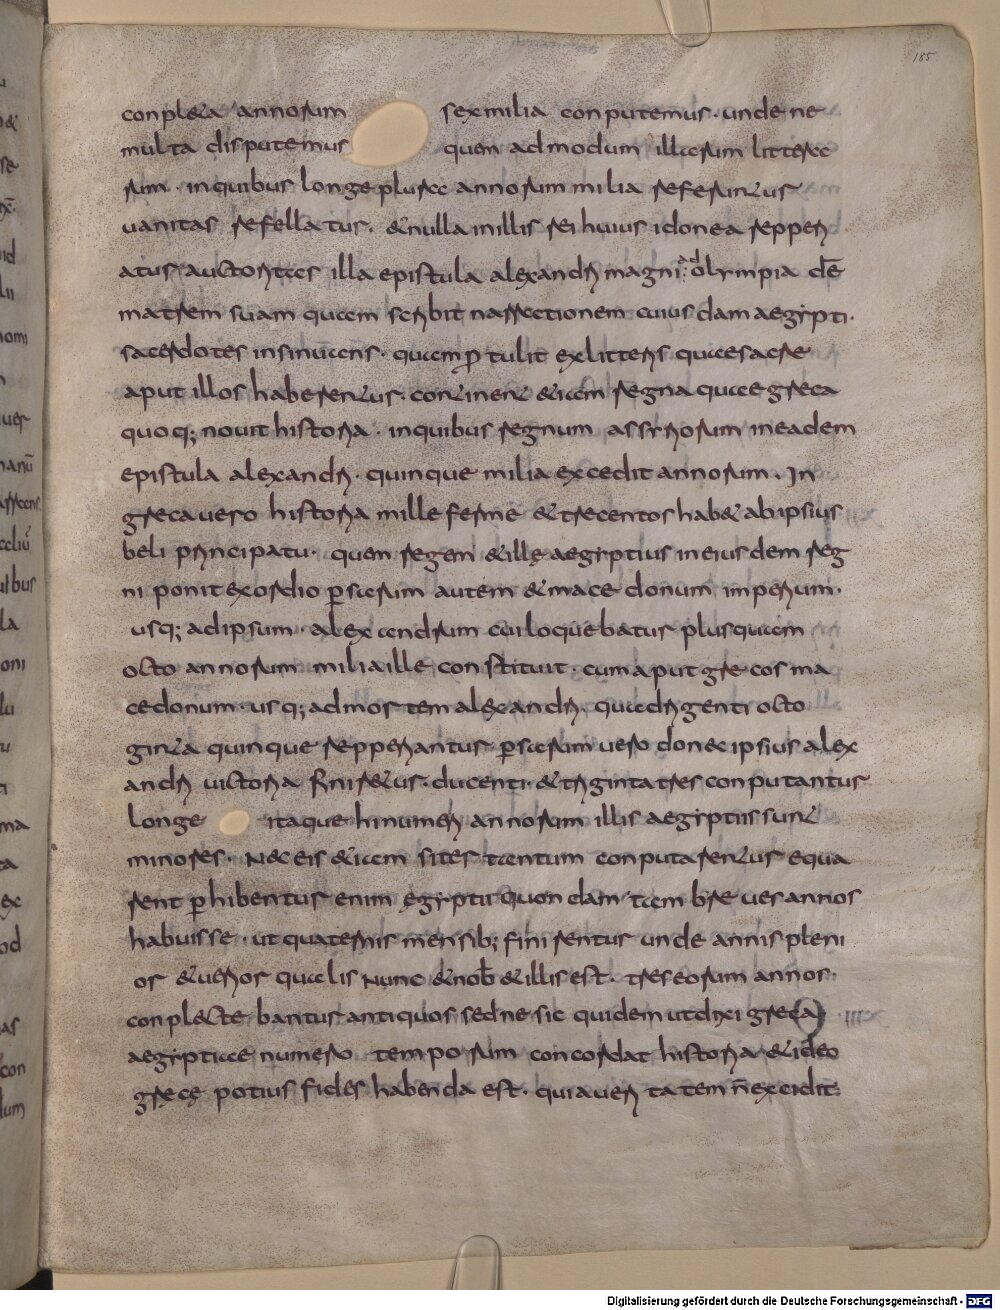 185
conpleta annorum sex milia conputemus. unde ne
multa disputemus quem admodum illarum littera
rum. in quibus longe plura annorum milia referuntur
uanitas refellatur. & nulla in illis rei huius idonea repperi
atur auctoritas illa epistula alexandri magni ad olympiadē
matrem suam quam scribit narrationem cuiusdam aegypti.
sacerdotes insinuans. quam ꝑtulit ex litteris quae sacre
aput illos haberentur. continent &iam regna quae greca
quoq; nouit historia. in quibus regnum assyriorum in eadem
epistula alexandri. quinque milia excedit annorum. In
greca uero historia mille ferme & trecentos hab& ab ipsius
beli principatu. quem regem & ille aegyptius in eiusdem reg
ni ponit exordio ꝑsarum autem & macedonum imperium.
usq; ad ipsum. alexandrum cui loquebatur plusquam
octo annorum milia ille constituit. cum aput grecos ma
cedonum. usq; ad mortem alexandri. quadrigenti octo
ginta quinque repperiantur ꝑsarum uero donec ipsius alex
andri uictoria finiretur. ducenti. & triginta tres conputantur
longe itaque hi numeri annorum illis aegyptiis sunt
minores. Nec eis &iam si ter tantum conputarentur equa
rent ꝑhibentur enim ęgyptii quondam tam breues annos
habuisse. ut quaternis mensib; finirentur unde annis pleni
or & uerior qualis nunc & nob̄ & illis est. tres eorum annos.
conplectebantur antiquos sed ne sic quidem ut dixi greca
XIII.
aegyptiace numero temporum concordat historia & ideo
grecę potius fides habenda est. quia ueritatem n̄ excidit
Digitalisierung gefördert durch die Deutsche Forschungsgemeinschaft - DFG